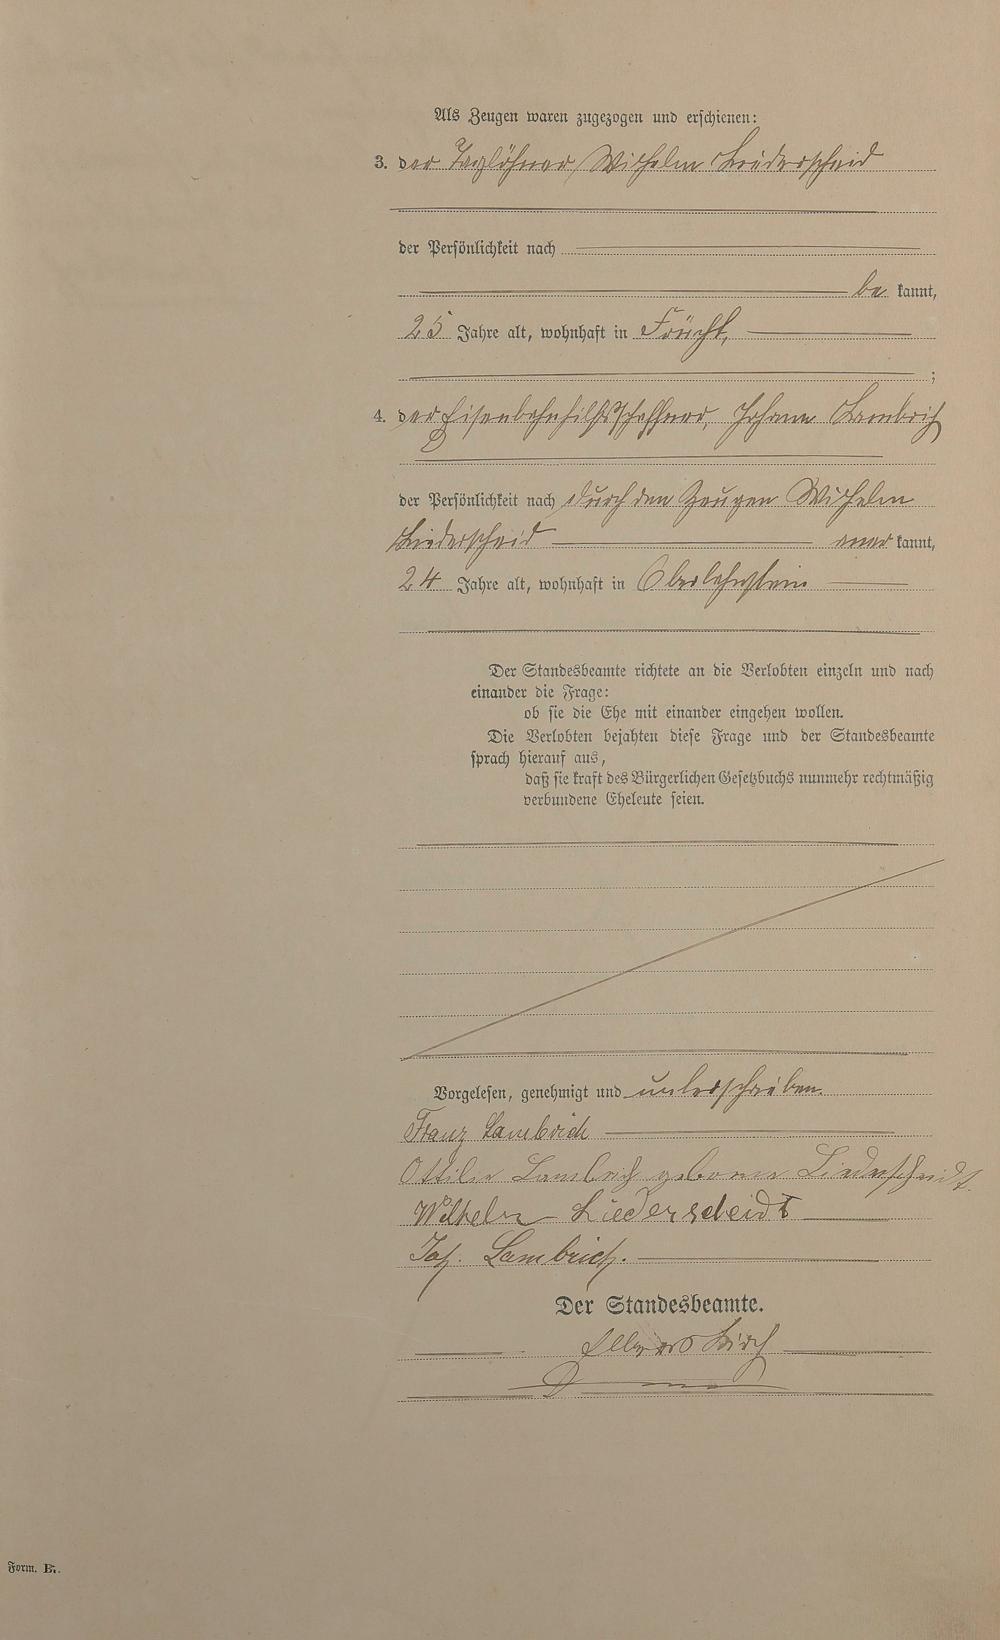 Als Zeugen waren zugezogen und erschienen:
3. der Taglöhner Wilhelm Liederscheid
der Persönlichkeit nach
be kannt,
25 Jahre alt, wohnhaft in Frücht,
;
4. der Eisenbahnhilfsschaffner, Johann Lambrich
der Persönlichkeit nach durch den Zeugen Wilhelm
Liederscheid aner kannt,
24 Jahre alt, wohnhaft in Oberlahnstein
Der Standesbeamte richtete an die Verlobten einzeln und nach
einander die Frage:
ob sie die Ehe mit einander eingehen wollen.
Die Verlobten bejahten diese Frage und der Standesbeamte
sprach hierauf aus,
daß sie kraft des Bürgerlichen Gesetzbuchs nunmehr rechtmäßig
verbundene Eheleute seien.
Vorgelesen, genehmigt und unterschrieben.
Franz Lambrich
Ottilie Lambrich geborene Liederscheidt.
Wilhelm Liederscheidt
Joh. Lambrich.
Der Standesbeamte.
Form. B.